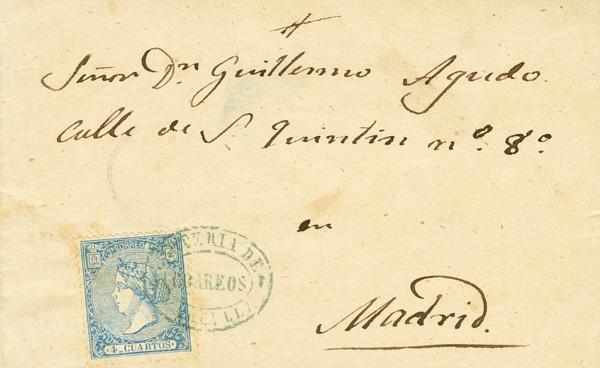 Señor Dn Guillermo Agudo.
calle de S. Quintin nº. 8º
en
Madrid.
CORREOS
4 CUARTOS
DE